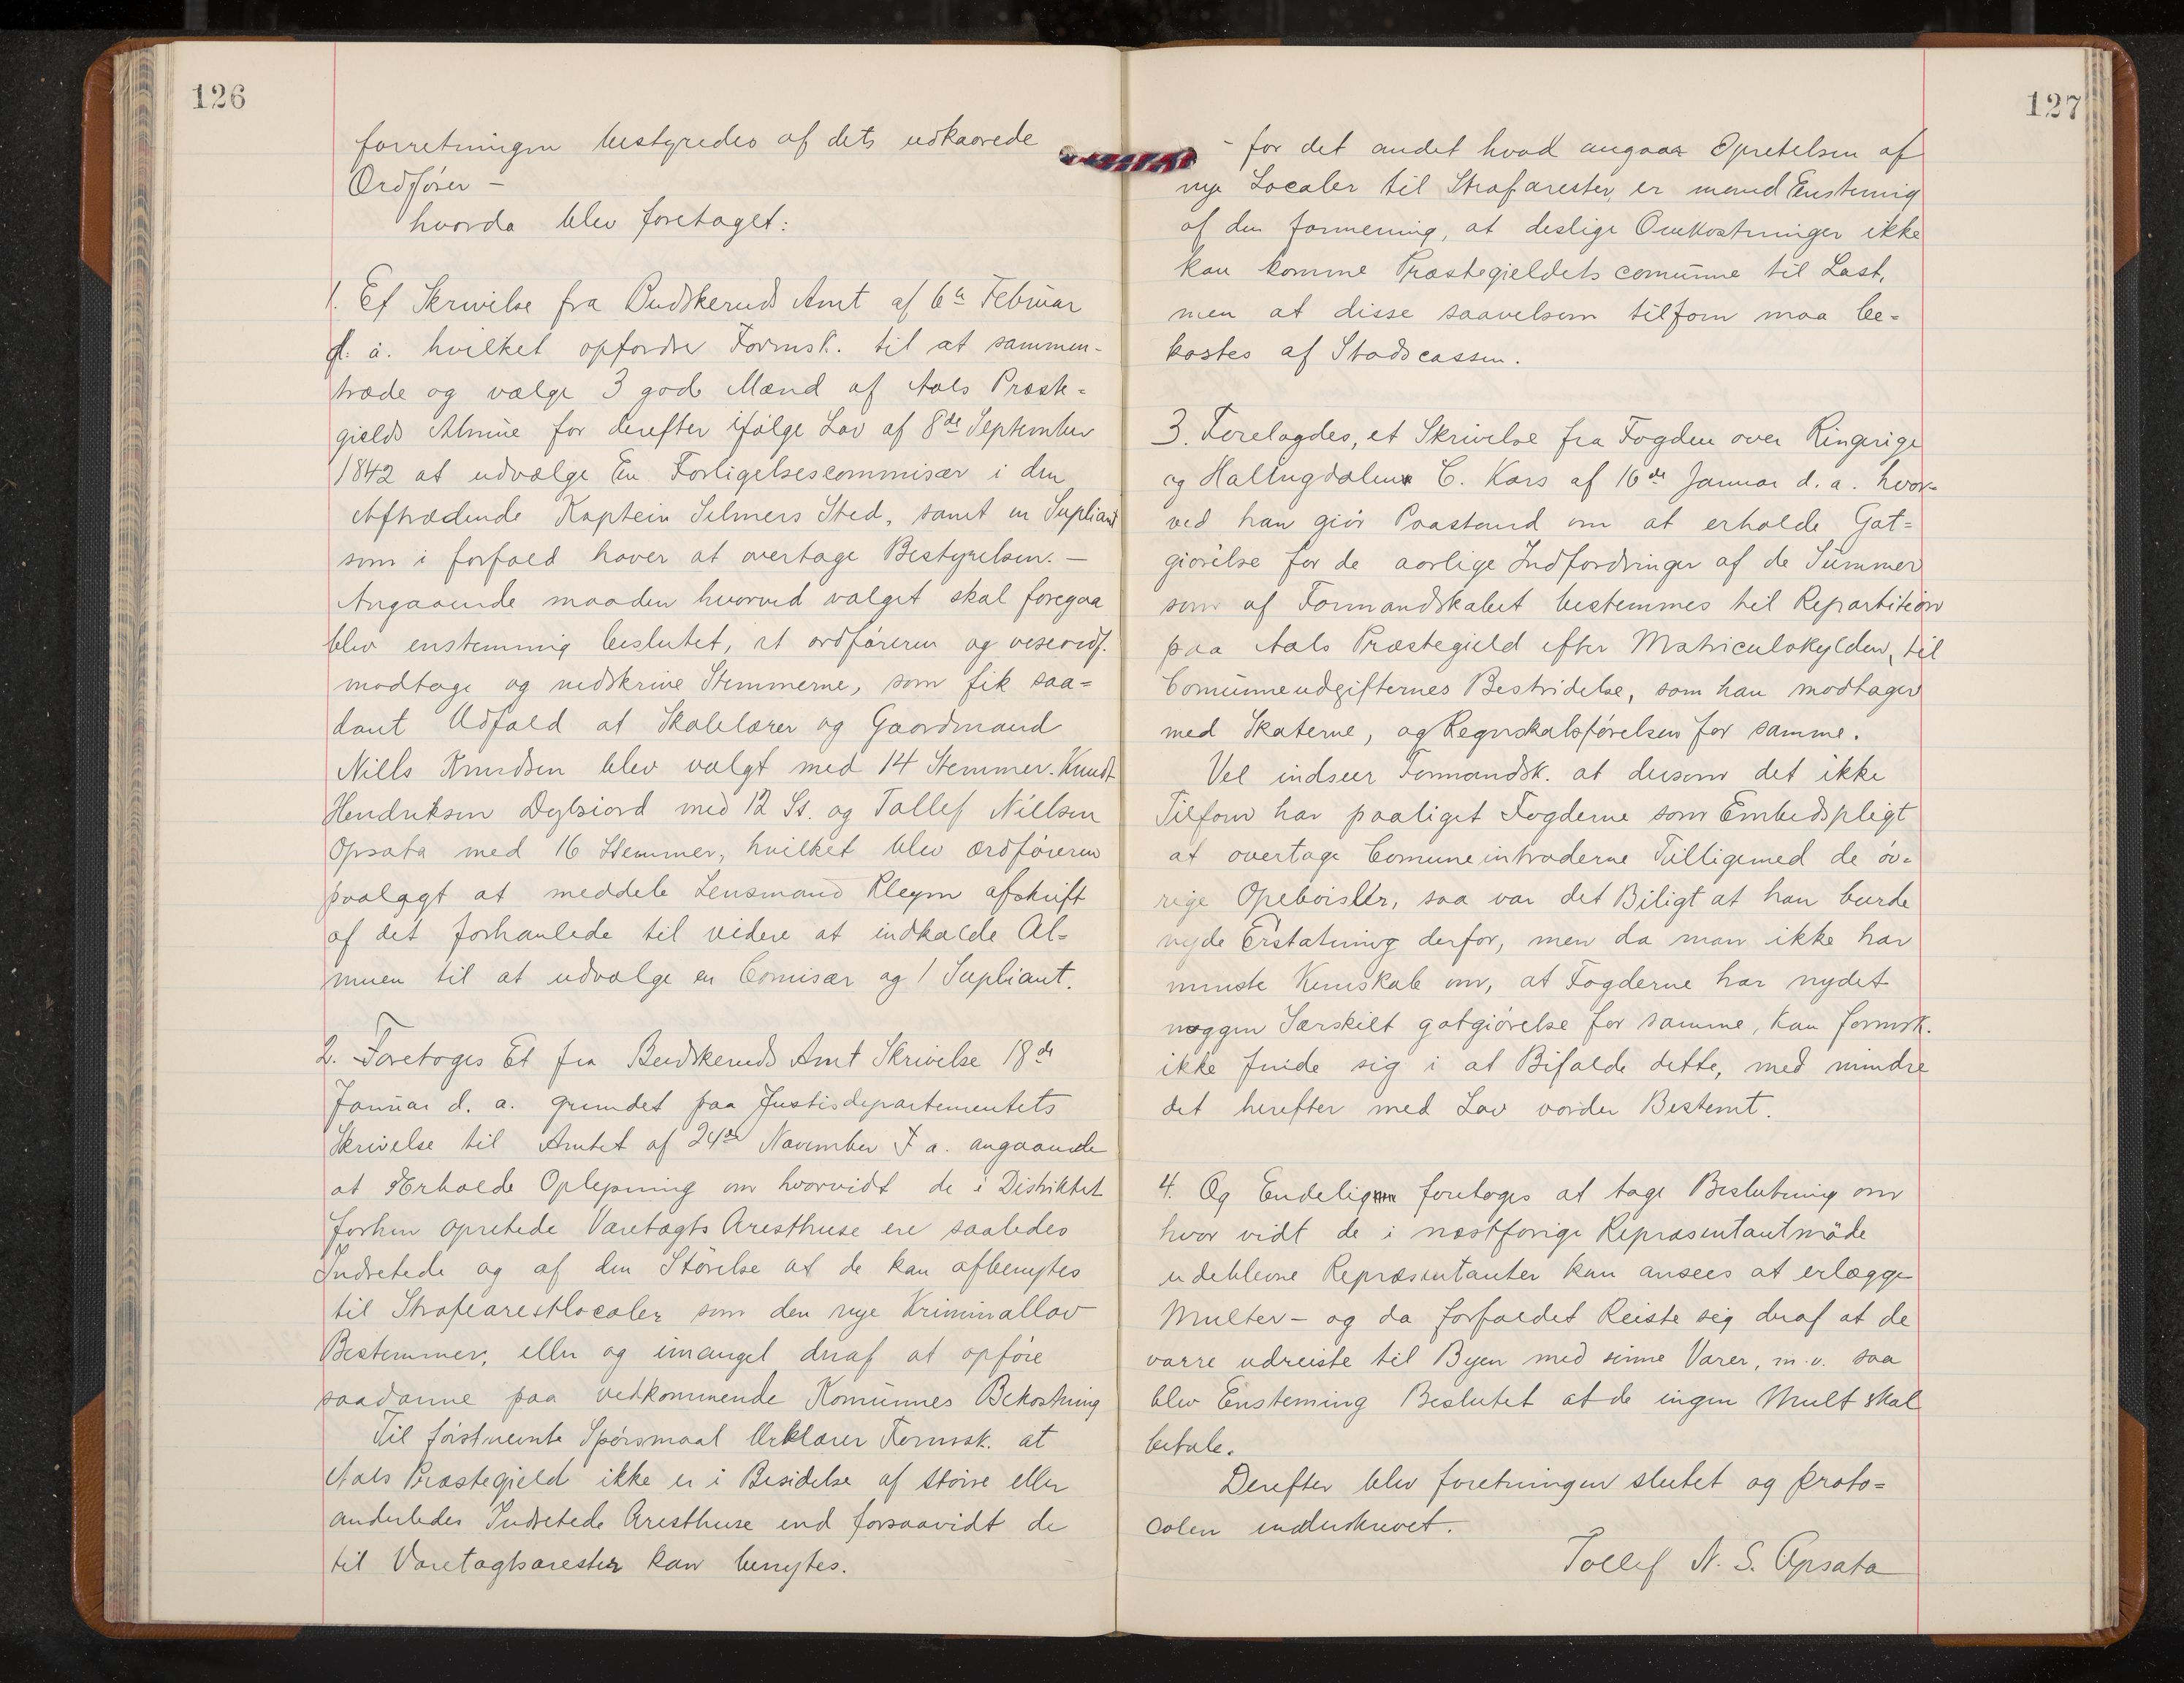 126
forretningen bestyredes af dets udkaarede
Ordfører -
hvorda blev foretaget:
1. Et Skrivelse fra Budskeruds Amt af 6te Februar
d. a. hvilket opfordre Formsk. til at sammen-
træde og vælge 3 gode Mænd af Aals Præste-
gields Almue for derefter ifølge Lov af 8de September
1842 at udvælge En Forligelsescommisær i den
Aftrædende Kaptein Selmers Sted, samt en Supliant
som i forfald haver at overtage Bestyrelsen. -
Angaaende maaden hvorved valget skal foregaa
blev enstemmig beslutet, at ordføreren og viseordf.
modtage og nedskrive Stemmerne, som fik saa-
dant Udfald at Skolelærer og Gaardmand
Nills Knudsen blev valgt med 14 Stemmer. Knudt
Hendriksen Dylsiord med 12 St. og Tollef Nillsen
Opsata med 16 Stemmer, hvilket blev ordføreren
paalagt at meddele Lensmand Kleym afskrift
af det forhanlede til videre at indkalde Al-
muen til at udvælge en Comisær og 1 Supliant.
2. Foretoges Et fra Budskeruds Amt Skrivelse 18de
Januar d. a. grundet paa Justisdepartementets
Skrivelse til Amtet af 24de November F a. angaaende
at Erholde Oplysning om hvorvidt de i Distriktet
forhen opretede Varetægts Aresthuse ere saaledes
Indretede og af den Störelse at de kan afbenytes
til Strafearestlocaler som den nye Kriminallov
Bestemmer, eller og imangel deraf at opføre
saadanne paa vedkommende Komunnes Bekostning
Til førstnevnte Spørsmaal Erklærer Formsk. at
Aals Præstegield ikke er i Besidelse af større eller
anderledes Indretede Aresthuse end forsaavidt de
til Varetægtsarester kan benytes.
127
- for det andet hvad angaar Opretelsen af
nye Localer til Strafarester, er mand Enstemig
af den formening, at deslige Omkostninger ikke
kan komme Præstegieldets comunne til Last,
men at disse saavelsom tilforn maa be-
kostes af Stadscassen.
3. Forelagdes, et Skrivelse fra Fogden over Ringerige
og Hallingdalen C. Kors af 16de Januar d. a. hvor-
ved han giör Paastand om at erholde Got-
giörelse for de aarlige Indfordringer af de Summer
som af Formandskabet bestemmes til Repartition
paa Aals Præstegield efter Matriculskylden, til
Comunneudgifternes Bestridelse, som han modtager
med Skaterne, og Regnskabsførelsen for samme.
Vel indseer Formandsk. at dersom det ikke
Tilforn har paaliget Fogderne som Embedspligt
at overtage Comuneintraderne Tilligemed de öv-
rige Opebörsler, saa var det Biligt at han burde
nyde Erstatning derfor, men da man ikke har
minste Kunskab om, at Fogderne har nydet
noggen Særskilt gotgiörelse for samme, kan formsk.
ikke finde sig i at Bifalde dette, med mindre
det herefter med Lov vorder Bestemt.
4. Og Endelig foretoges at tage Beslutning om
hvor vidt de i næstforige Repræsentantmöde
udeblevne Repræsentanter kan ansees at erlægge
Multer - og da forfaldet Reiste sig deraf at de
varre udreiste til Byen med sinne Varer, m. v. saa
blev Enstemmig Beslutet at de ingen Mult skal
betale.
Derefter blev foretningen slutet og proto-
colen underskrevet.
Tollef N. S. Opsata